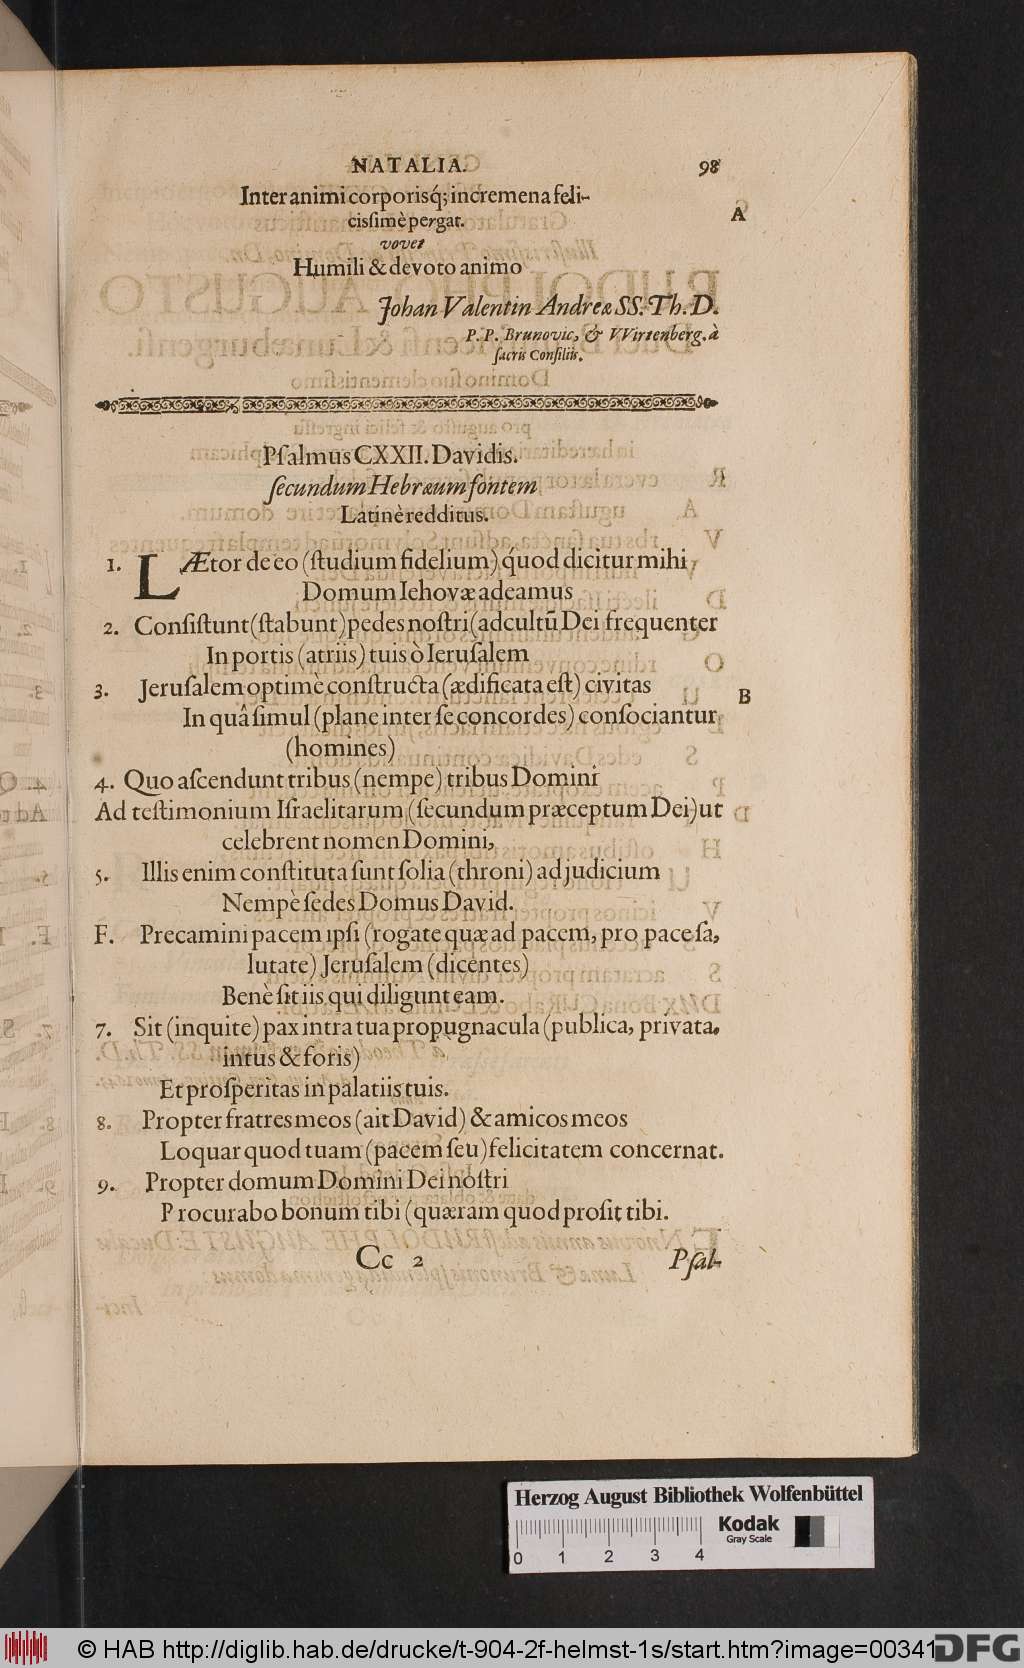 NATALIA. 98
Inter animi corporisq́; incremena feli-
cisſimè pergat. A
vovet
Humili & devoto animo
Johan Valentin Andreæ SS. Th. D.
P. P. Brunovic, & VVirtenberg. à
ſacris Conſiliis.
Pſalmus CXXII. Davidis.
ſecundum Hebræum fontem
Latinè redditus.
1. LÆtor de eo (ſtudium fidelium) q́uod dicitur mihi
Domum Iehovæ adeamus
2. Conſiſtunt (ſtabunt) pedes noſtri (ad cultũ Dei frequenter
In portis (atriis) tuis ò Ieruſalem
3. Jeruſalem optimè conſtructa (ædificata eſt) civitas B
In quâ ſimul (plane inter ſe concordes) conſociantur
(homines)
4. Quo aſcendunt tribus (nempe) tribus Domini
Ad teſtimonium Iſraelitarum (ſecundum præceptum Dei) ut
celebrent nomen Domini,
5. Illis enim conſtituta ſunt ſolia (throni) ad judicium
Nempè ſedes Domus David.
F. Precamini pacem ipſi (rogate quæ ad pacem, pro pace ſa,
lutate) Jeruſalem (dicentes)
Benè ſit iis qui diligunt eam.
7. Sit (inquite) pax intra tua propugnacula (publica, privata,
intus & foris)
Et proſperitas in palatiis tuis.
8. Propter fratres meos (ait David) & amicos meos
Loquar quod tuam (pacem ſeu) felicitatem concernat.
9. Propter domum Domini Dei noſtri
Procurabo bonum tibi (quæram quod proſit tibi.
Cc 2 Pſal-
Herzog August Bibliothek Wolfenbüttel
Kodak
Gray Scale
0 1 2 3 4
© HAB http://diglib.hab.de/drucke/t-904-2f-helmst-1s/start.htm?image=00341
DFG